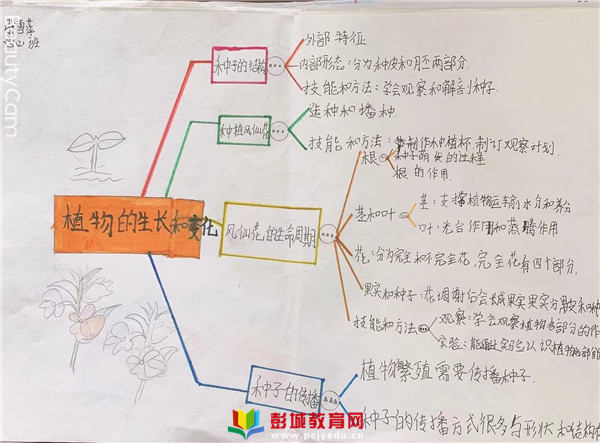 四(2)班
BeautyCam.com
种子的结构
外部特征
内部形态:分为种皮和胚两部分.
技能和方法:学会观察和解剖种子.
种植凤仙花
选种和播种.
技能和方法:制作种植杯.制订观察计划.
植物的生长和变化
凤仙花的生命周期
根
种子萌发的过程
根的作用.
茎和叶
茎:支撑植物运输水分和养分
叶:光合作用和蒸腾作用
花:分为完全和不完全花,完全花有四个部分.
果实和种子:花凋谢后会长成果实果实分果皮和种
技能和方法
观察:学会观察植物各部分的作
实验:能通过实验认识植物各部的
种子的传播
植物繁殖需要传播种子.
种子的传播方式很多与形状和结构
彭城教育网
www.pcjyedu.cn